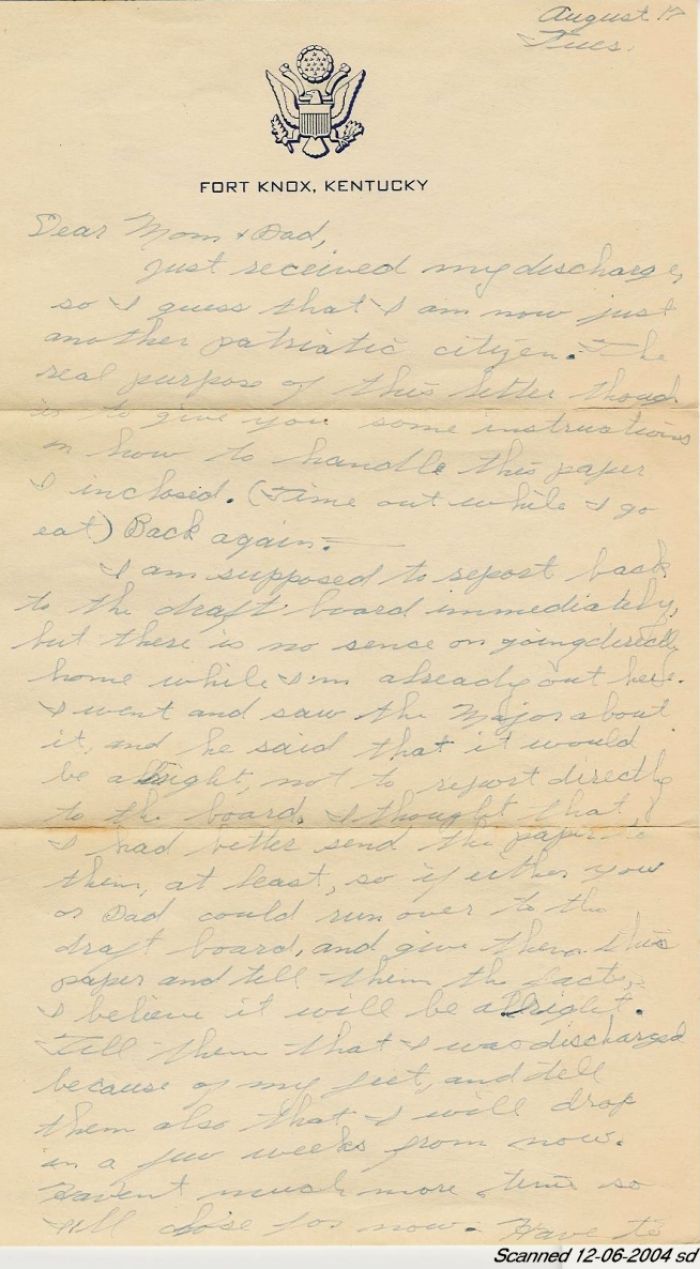 August 17
Tues.
FORT KNOX, KENTUCKY
Dear Mom & Dad,
Just received my discharge,
so I guess that I am now just
another patriatic citizen. The
real purpose of this letter though
is to give you some instructions
on how to handle this paper
I inclosed. (Time out while I go
eat) Back again.
I am supposed to report back
to the draft board immediately,
but there is no sence on going directly
home while I'm already out here.
I went and saw the Major about
it, and he said that it would
be allright, not to report directly
to the board. I thought that
I had better send the paper to
them, at least, so if either you
or Dad could run over to the
draft board, and give them this
paper and tell them the facts,
I believe it will be allright.
Tell them that I was discharged
because of my feet, and tell
them also that I will drop
in a few weeks from now.
Havent much more time so
will close for now. Have to
Scanned 12-06-2004 sd